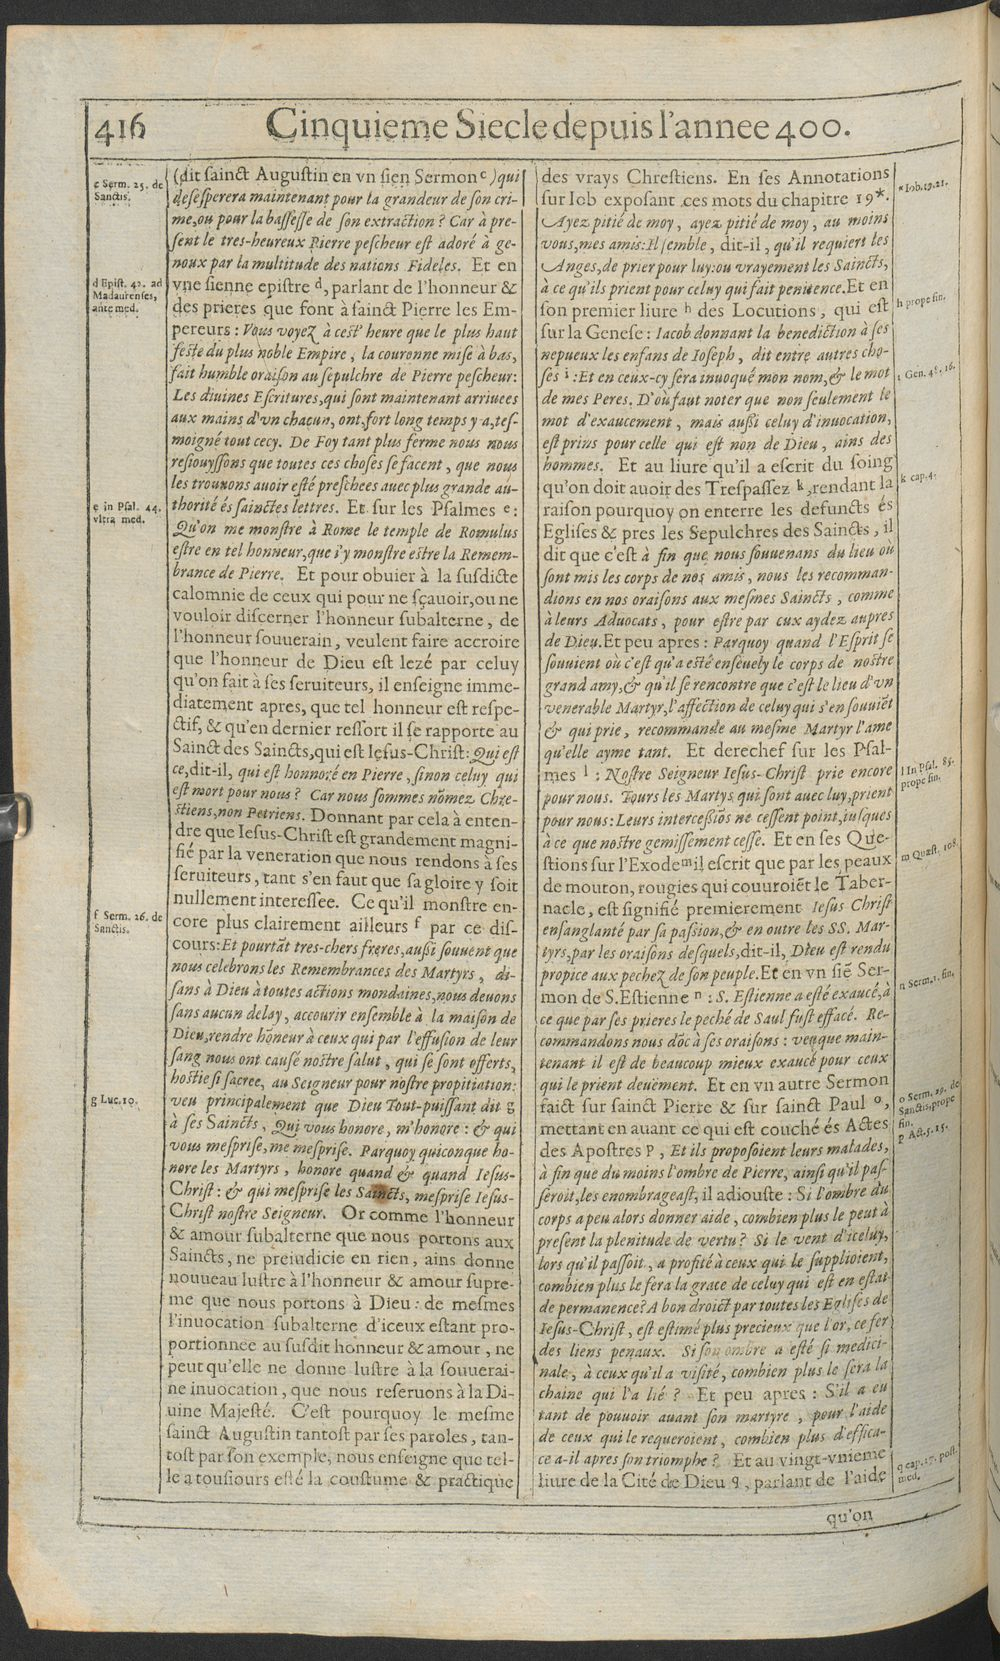 416 Cinquieme Siecle depuis l'annee 400.
c Serm. 25. de
Sanctis.
d Epist. 42. ad
Madaurenses,
ante med.
e in Psal. 44.
vltra med.
f Serm. 26. de
Sanctis.
g Luc. 10.
(dit sainct Augustin en vn sien Sermon c) qui
desesperera maintenant pour la grandeur de son cri-
me, ou pour la bassesse de son extraction? Car à pre-
sent le tres-heureux Pierre pescheur est adoré à ge-
noux par la multitude des nations Fideles. Et en
vne sienne epistre d, parlant de l'honneur &
des prieres que font à sainct Pierre les Em-
pereurs: Vous voyez à cest' heure que le plus haut
feste du plus noble Empire, la couronne mise à bas,
fait humble oraison au sepulchre de Pierre pescheur:
Les diuines Escritures, qui sont maintenant arriuees
aux mains d'vn chacun, ont, fort long temps y a, tes-
moigné tout cecy. De Foy tant plus ferme nous nous
resiouyssons que toutes ces choses se facent, que nous
les trouuons auoir esté preschees auec plus grande au-
thorité és sainctes lettres. Et sur les Psalmes e:
Qu'on me monstre à Rome le temple de Romulus
estre en tel honneur, que i'y monstre estre la Remem-
brance de Pierre. Et pour obuier à la susdicte
calomnie de ceux qui pour ne sçauoir, ou ne
vouloir discerner l'honneur subalterne, de
l'honneur souuerain, veulent faire accroire
que l'honneur de Dieu est lezé par celuy
qu'on fait à ses seruiteurs, il enseigne imme-
diatement apres, que tel honneur est respe-
ctif, & qu'en dernier ressort il se rapporte au
Sainct des Saincts, qui est Iesus-Christ: Qui est
ce, dit-il, qui est honnoré en Pierre, sinon celuy qui
est mort pour nous? Car nous sommes nōmez Chre-
stiens, non Petriens. Donnant par cela à enten-
dre que Iesus-Christ est grandement magni-
fié par la veneration que nous rendons à ses
seruiteurs, tant s'en faut que sa gloire y soit
nullement interessee. Ce qu'il monstre en-
core plus clairement ailleurs f par ce dis-
cours: Et pourtāt tres-chers freres, aussi souuent que
nous celebrons les Remembrances des Martyrs, di-
sans à Dieu à toutes actions mondaines, nous deuons
sans aucun delay, accourir ensemble à la maison de
Dieu, rendre hōneur à ceux qui par l'effusion de leur
sang nous ont causé nostre salut, qui se sont offerts,
hostie si sacree, au Seigneur pour nostre propitiation:
veu principalement que Dieu Tout-puissant dit g
à ses Saincts, Qui vous honore, m'honore: & qui
vous mesprise, me mesprise. Parquoy quiconque ho-
nore les Martyrs, honore quand & quand Iesus-
Christ: & qui mesprise les Saincts, mesprise Iesus-
Christ nostre Seigneur. Or comme l'honneur
& amour subalterne que nous portons aux
Saincts, ne preiudicie en rien, ains donne
nouueau lustre à l'honneur & amour supre-
me que nous portons à Dieu: de mesmes
l'inuocation subalterne d'iceux estant pro-
portionnee au susdit honneur & amour, ne
peut qu'elle ne donne lustre à la souuerai-
ne inuocation, que nous reseruons à la Di-
uine Majesté. C'est pourquoy le mesme
sainct Augustin tantost par ses paroles, tan-
tost par son exemple, nous enseigne que tel-
le a tousiours esté la coustume & practique
des vrays Chrestiens. En ses Annotations
sur Iob exposant ces mots du chapitre 19*.
Ayez pitié de moy, ayez pitié de moy, au moins
vous, mes amis: Il semble, dit-il, qu'il requiert les
Anges, de prier pour luy: ou vrayement les Saincts,
à ce qu'ils prient pour celuy qui fait penitence. Et en
son premier liure h des Locutions, qui est
sur la Genese: Iacob donnant la benediction à ses
nepueux les enfans de Ioseph, dit entre autres cho-
ses i: Et en ceux-cy sera inuoqué mon nom, & le mot
de mes Peres. D'où faut noter que non seulement le
mot d'exaucement, mais aussi celuy d'inuocation,
est prins pour celle qui est non de Dieu, ains des
hommes. Et au liure qu'il a escrit du soing
qu'on doit auoir des Trespassez k, rendant la
raison pourquoy on enterre les defuncts és
Eglises & pres les Sepulchres des Saincts, il
dit que c'est à fin que nous souuenans du lieu où
sont mis les corps de nos amis, nous les recomman-
dions en nos oraisons aux mesmes Saincts, comme
à leurs Aduocats, pour estre par eux aydez aupres
de Dieu. Et peu apres: Parquoy quand l'Esprit se
souuient où c'est qu'a esté enseuely le corps de nostre
grand amy, & qu'il se rencontre que c'est le lieu d'vn
venerable Martyr, l'affection de celuy qui s'en souuiēt
& qui prie, recommande au mesme Martyr l'ame
qu'elle ayme tant. Et derechef sur les Psal-
mes l: Nostre Seigneur Iesus-Christ prie encore
pour nous. Tours les Martys qui sont auec luy, prient
pour nous: Leurs intercessiōs ne cessent point, iusques
à ce que nostre gemissement cesse. Et en ses Que-
stions sur l'Exode m il escrit que par les peaux
de mouton, rougies qui couuroiēt le Taber-
nacle, est signifié premierement Iesus Christ
ensanglanté par sa passion, & en outre les SS. Mar-
tyrs, par les oraisons desquels, dit-il, Dieu est rendu
propice aux pechez de son peuple. Et en vn siē Ser-
mon de S. Estienne n: S. Estienne a esté exaucé, à
ce que par ses prieres le peché de Saul fust effacé. Re-
commandons nous dōc à ses oraisons: veu que main-
tenant il est de beaucoup mieux exaucé pour ceux
qui le prient deuëment. Et en vn autre Sermon
faict sur sainct Pierre & sur sainct Paul o,
mettant en auant ce qui est couché és Actes
des Apostres p, Et ils proposoient leurs malades,
à fin que du moins l'ombre de Pierre, ainsi qu'il pas-
seroit, les enombrageast, il adiouste: Si l'ombre du
corps a peu alors donner aide, combien plus le peut à
present la plenitude de vertu? Si le vent d'iceluy,
lors qu'il passoit, a profité à ceux qui le supplioient,
combien plus le sera la grace de celuy qui est en estat
de permanence? A bon droict par toutes les Eglises de
Iesus-Christ, est estimé plus precieux que l'or, ce fer
des liens penaux. Si son ombre a esté si medici-
nale, à ceux qu'il a visité, combien plus le sera la
chaine qui l'a lié? Et peu apres: S'il a eu
tant de pouuoir auant son martyre, pour l'aide
de ceux qui le requeroient, combien plus d'effica-
ce a-il apres son triomphe? Et au vingt-vnieme
liure de la Cité de Dieu q, parlant de l'aide
qu'on
* Iob. 19. 21.
h prope fin.
i Gen. 48. 16.
k cap. 4.
l In Psal. 85.
prope fin.
m Quæst. 108.
n Serm. 1. fin.
o Serm. 29. de
Sanctis, prope
fin.
p Act. 5. 15.
q cap. 27. post
med.